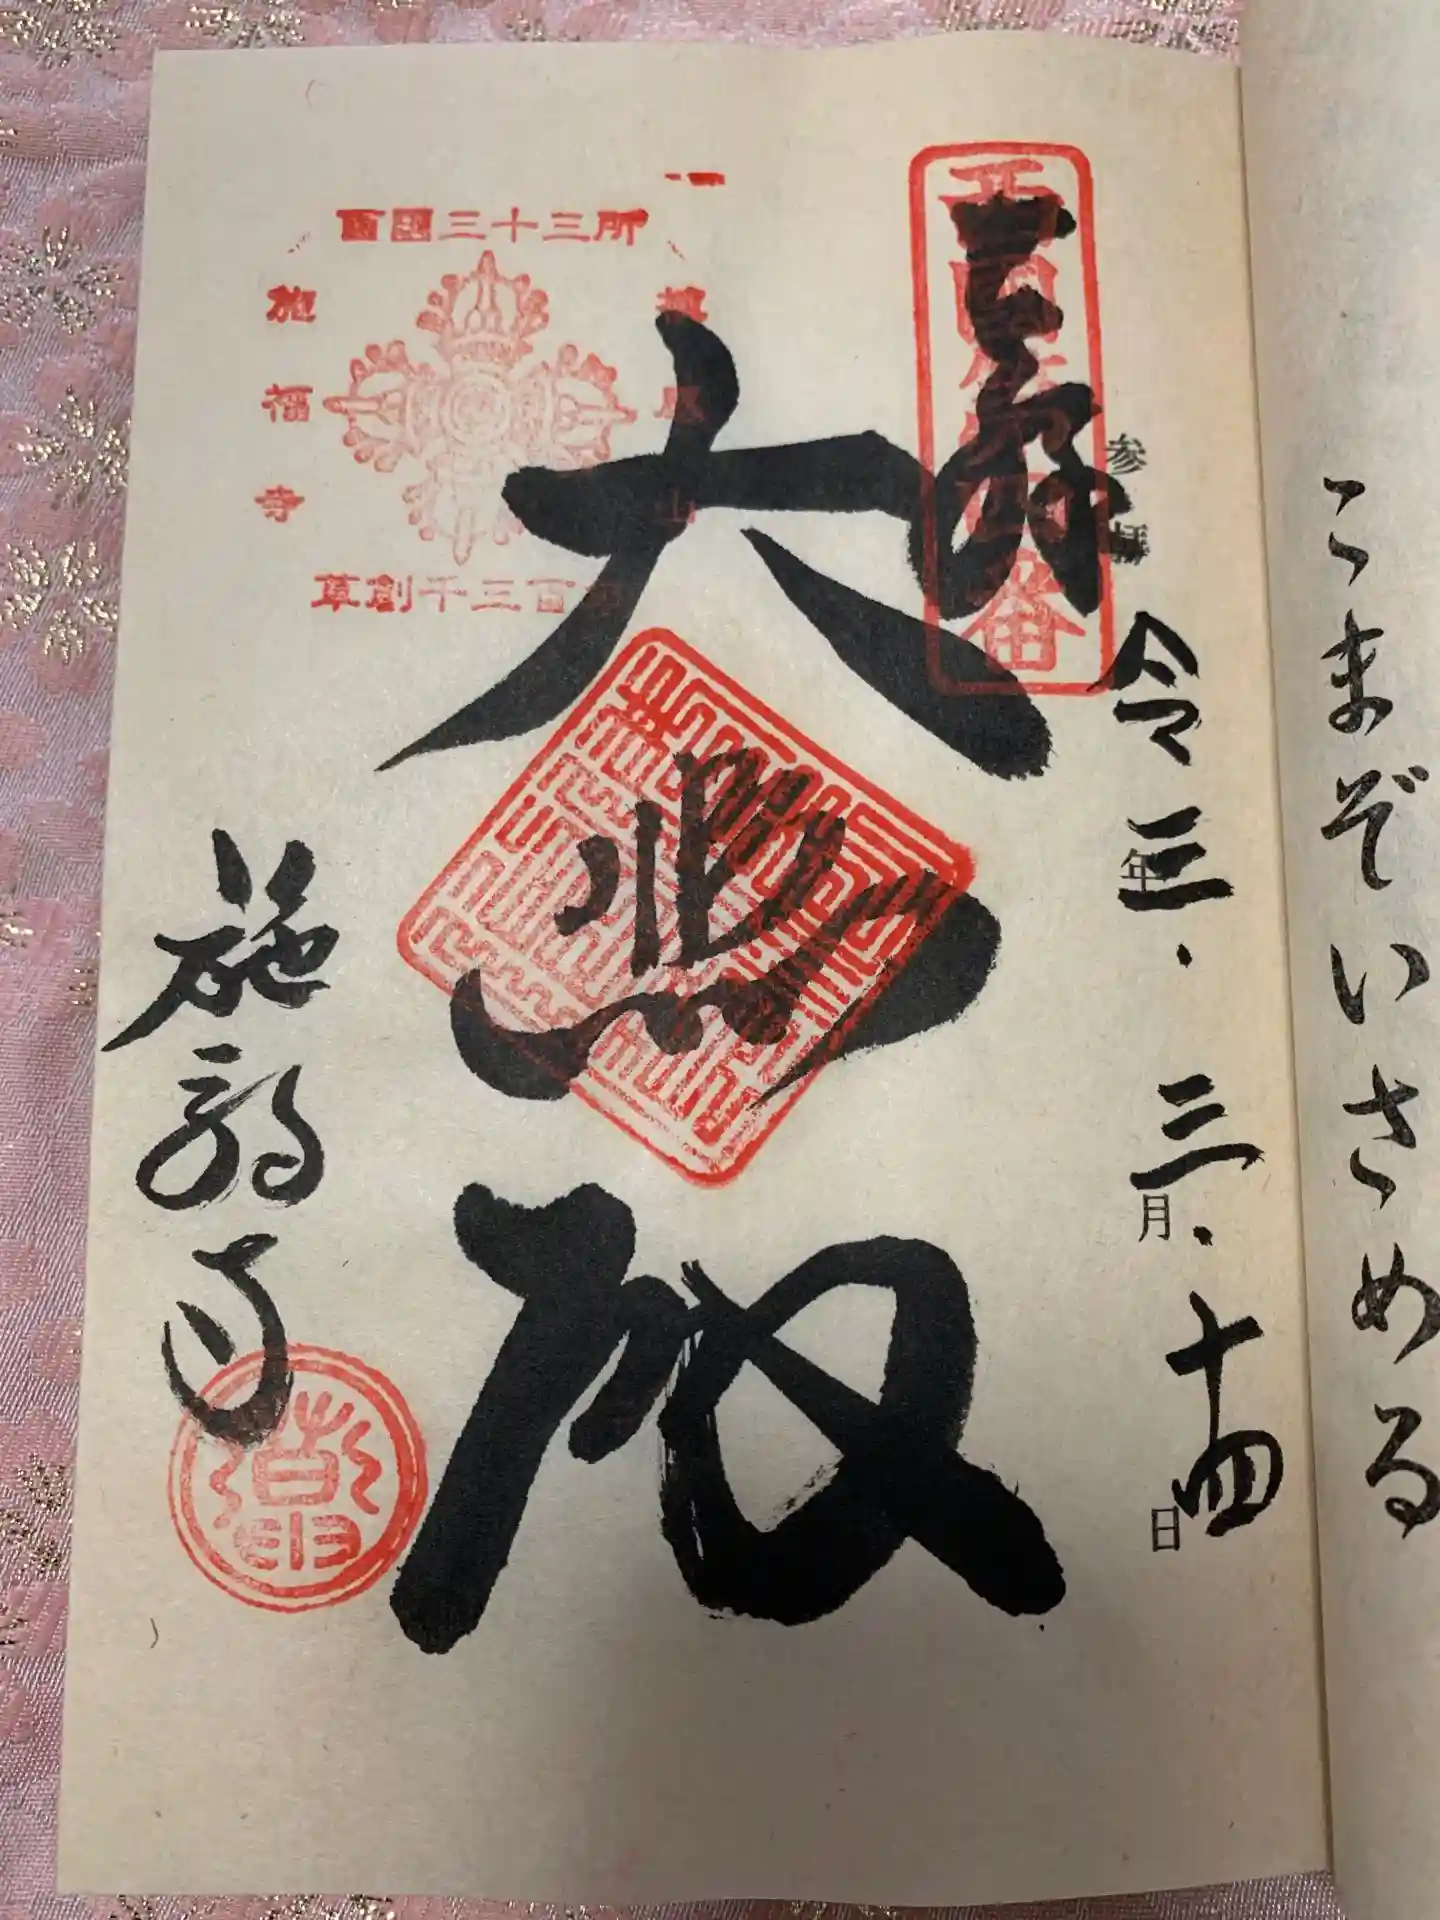 こまぞいさめる
西国第四番
参拝
令三年.三月.十四日
大悲殿
西國三十三所
槇尾山
施福寺
草創千三百年
施福寺